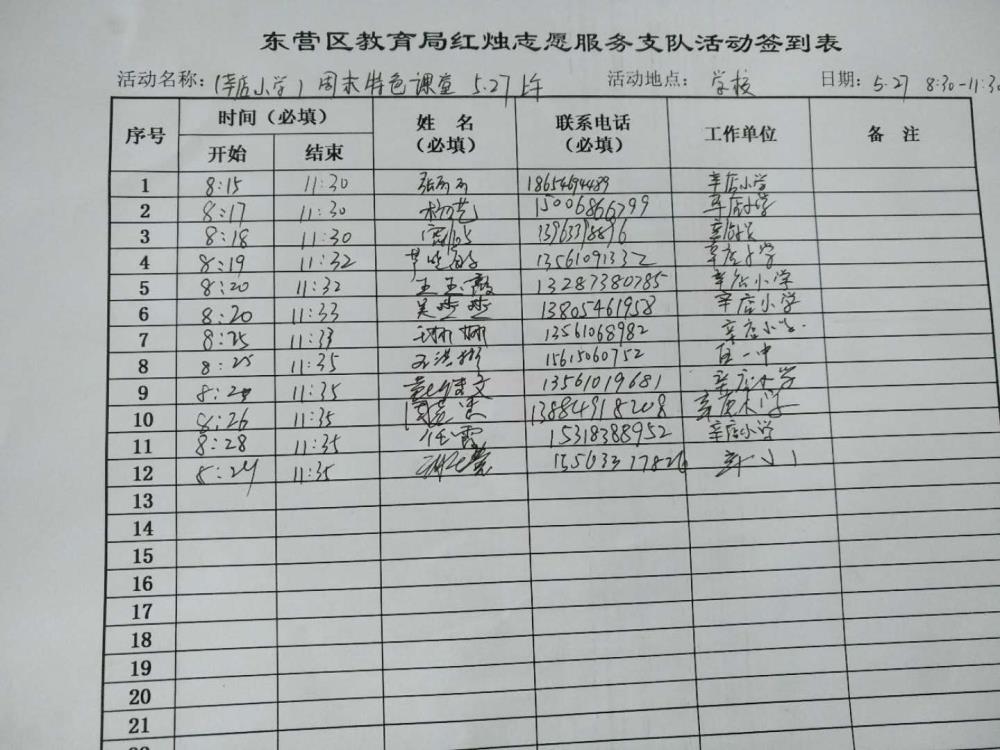 东营区教育局红烛志愿服务支队活动签到表
活动名称：(辛店小学)周末特色课堂 5.27上午 活动地点：学校 日期：5.27 8:30-11:30
序号 时间（必填） 姓名（必填） 联系电话（必填） 工作单位 备注
开始 结束
1 8:15 11:30 18654694489 辛店小学
2 8:17 11:30 杨艺 15006866799 辛店小学
3 8:18 11:30
4 8:19 11:32 辛店小学
5 8:20 11:32 13287380785 辛店小学
6 8:20 11:33 吴梦梦 13805461958 辛店小学
7 8:25 11:33 13561068982 辛店小学
8 8:25 11:35 15615060752 一中
9 11:35 13561019681 辛店小学
10 8:26 11:35 13884918208 辛店小学
11 8:28 11:35 任霞 15318388952 辛店小学
12 11:35
13
14
15
16
17
18
19
20
21